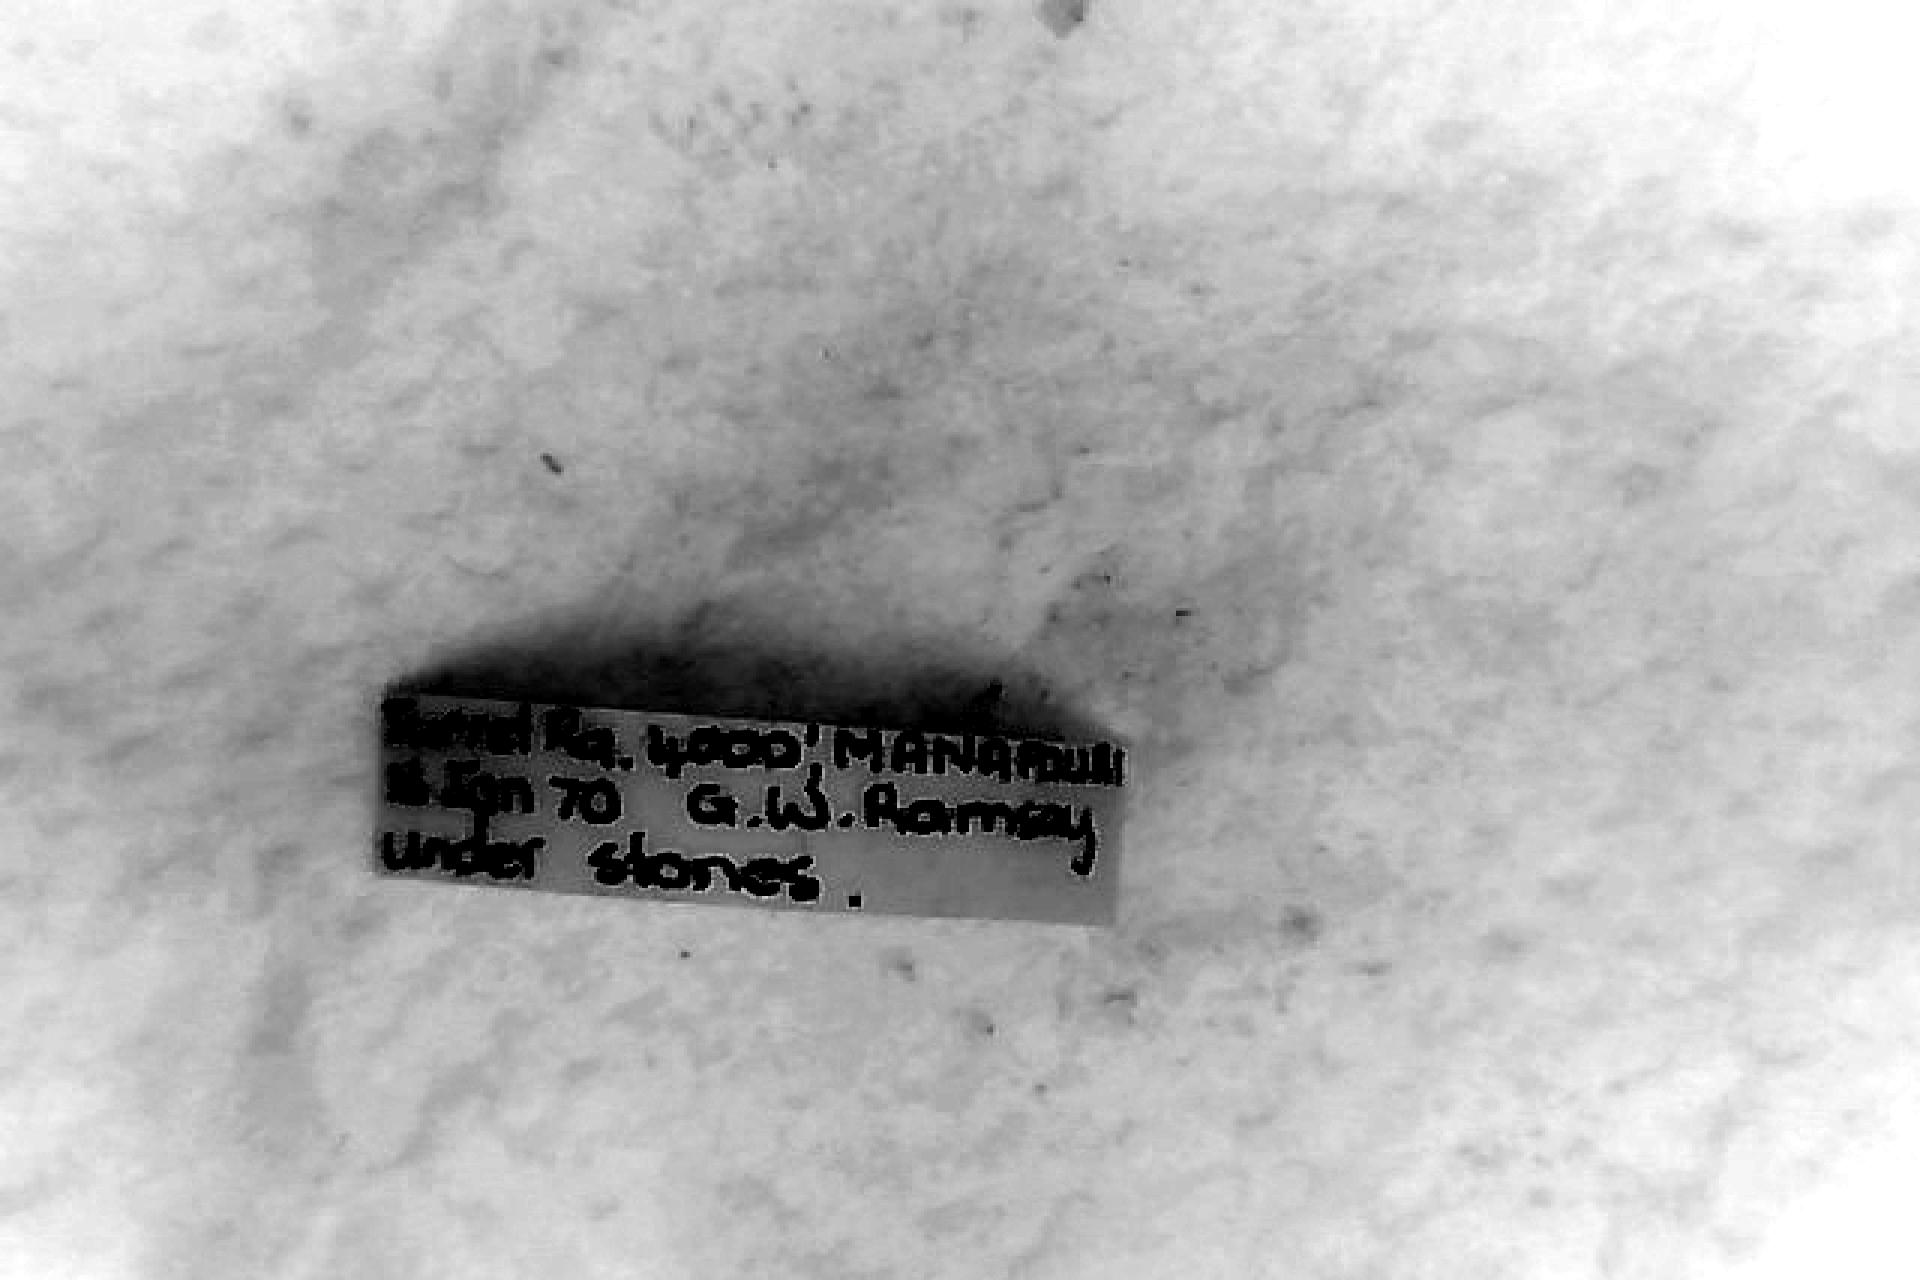 Rg. 4000', MANAPOURI
Jan 70 G.W. Ramsay
under stones.